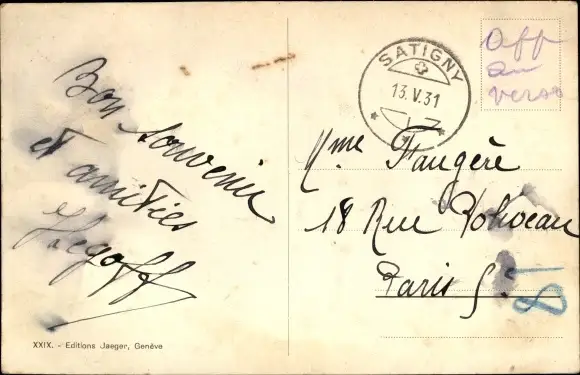 Bon souvenir
et amitiés
XXIX. - Editions Jaeger, Genève
SATIGNY
13.V.31
aff
au
verso
Mme Faugère
18 Rue Poliveau
Paris 5e